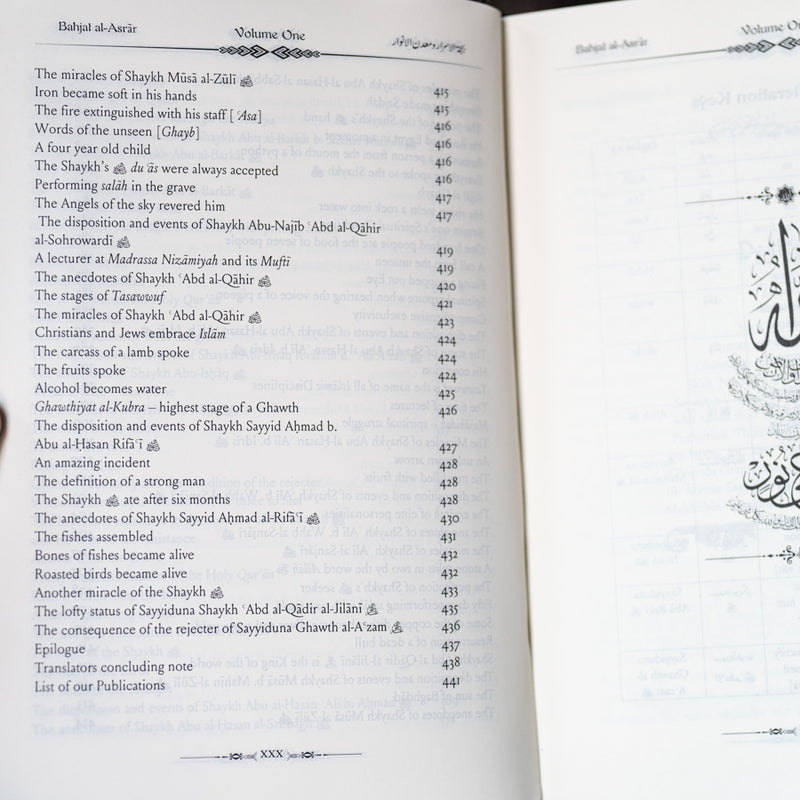 Bahjat al-Asrār Volume One بہجۃ الاسرار و معدن الانوار
The miracles of Shaykh Mūsā al-Zūlī 415
Iron became soft in his hands 415
The fire extinguished with his staff [ ʿAsa] 416
Words of the unseen [Ghayb] 416
A four year old child 416
The Shaykh's du ʿās were always accepted 416
Performing salāh in the grave 417
The Angels of the sky revered him 417
The disposition and events of Shaykh Abu-Najīb ʿAbd al-Qāhir
al-Sohrowardī 419
A lecturer at Madrassa Nizāmiyah and its Muftī 419
The anecdotes of Shaykh ʿAbd al-Qāhir 420
The stages of Tasawwuf 421
The miracles of Shaykh ʿAbd al-Qāhir 423
Christians and Jews embrace Islām 424
The carcass of a lamb spoke 424
The fruits spoke 424
Alcohol becomes water 425
Ghawthiyat al-Kubra – highest stage of a Ghawth 426
The disposition and events of Shaykh Sayyid Aḥmad b.
Abu al-Ḥasan Rifāʿī 427
An amazing incident 428
The definition of a strong man 428
The Shaykh ate after six months 428
The anecdotes of Shaykh Sayyid Aḥmad al-Rifāʿī 430
The fishes assembled 431
Bones of fishes became alive 432
Roasted birds became alive 432
Another miracle of the Shaykh 433
The lofty status of Sayyiduna Shaykh ʿAbd al-Qādir al-Jilānī 435
The consequence of the rejecter of Sayyiduna Ghawth al-Aʿzam 436
Epilogue 437
Translators concluding note 438
List of our Publications 441
XXX
Bahjat al-Asrār Volume